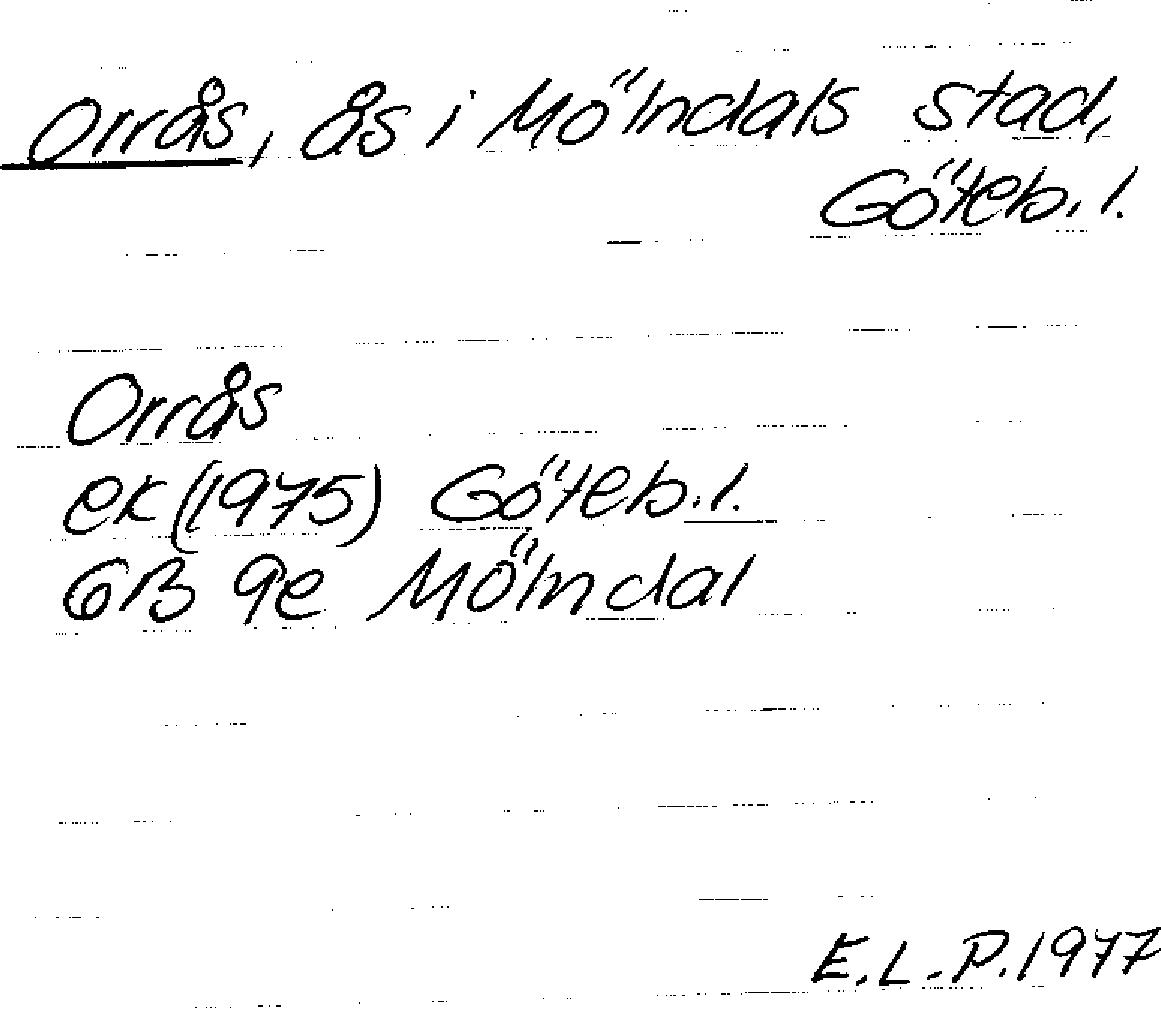 Orrås, ås i Mölndals stad,
Göteb. l.
Orrås
ek (1975) Göteb. l.
6B 9e Mölndal
E.L.P. 1977